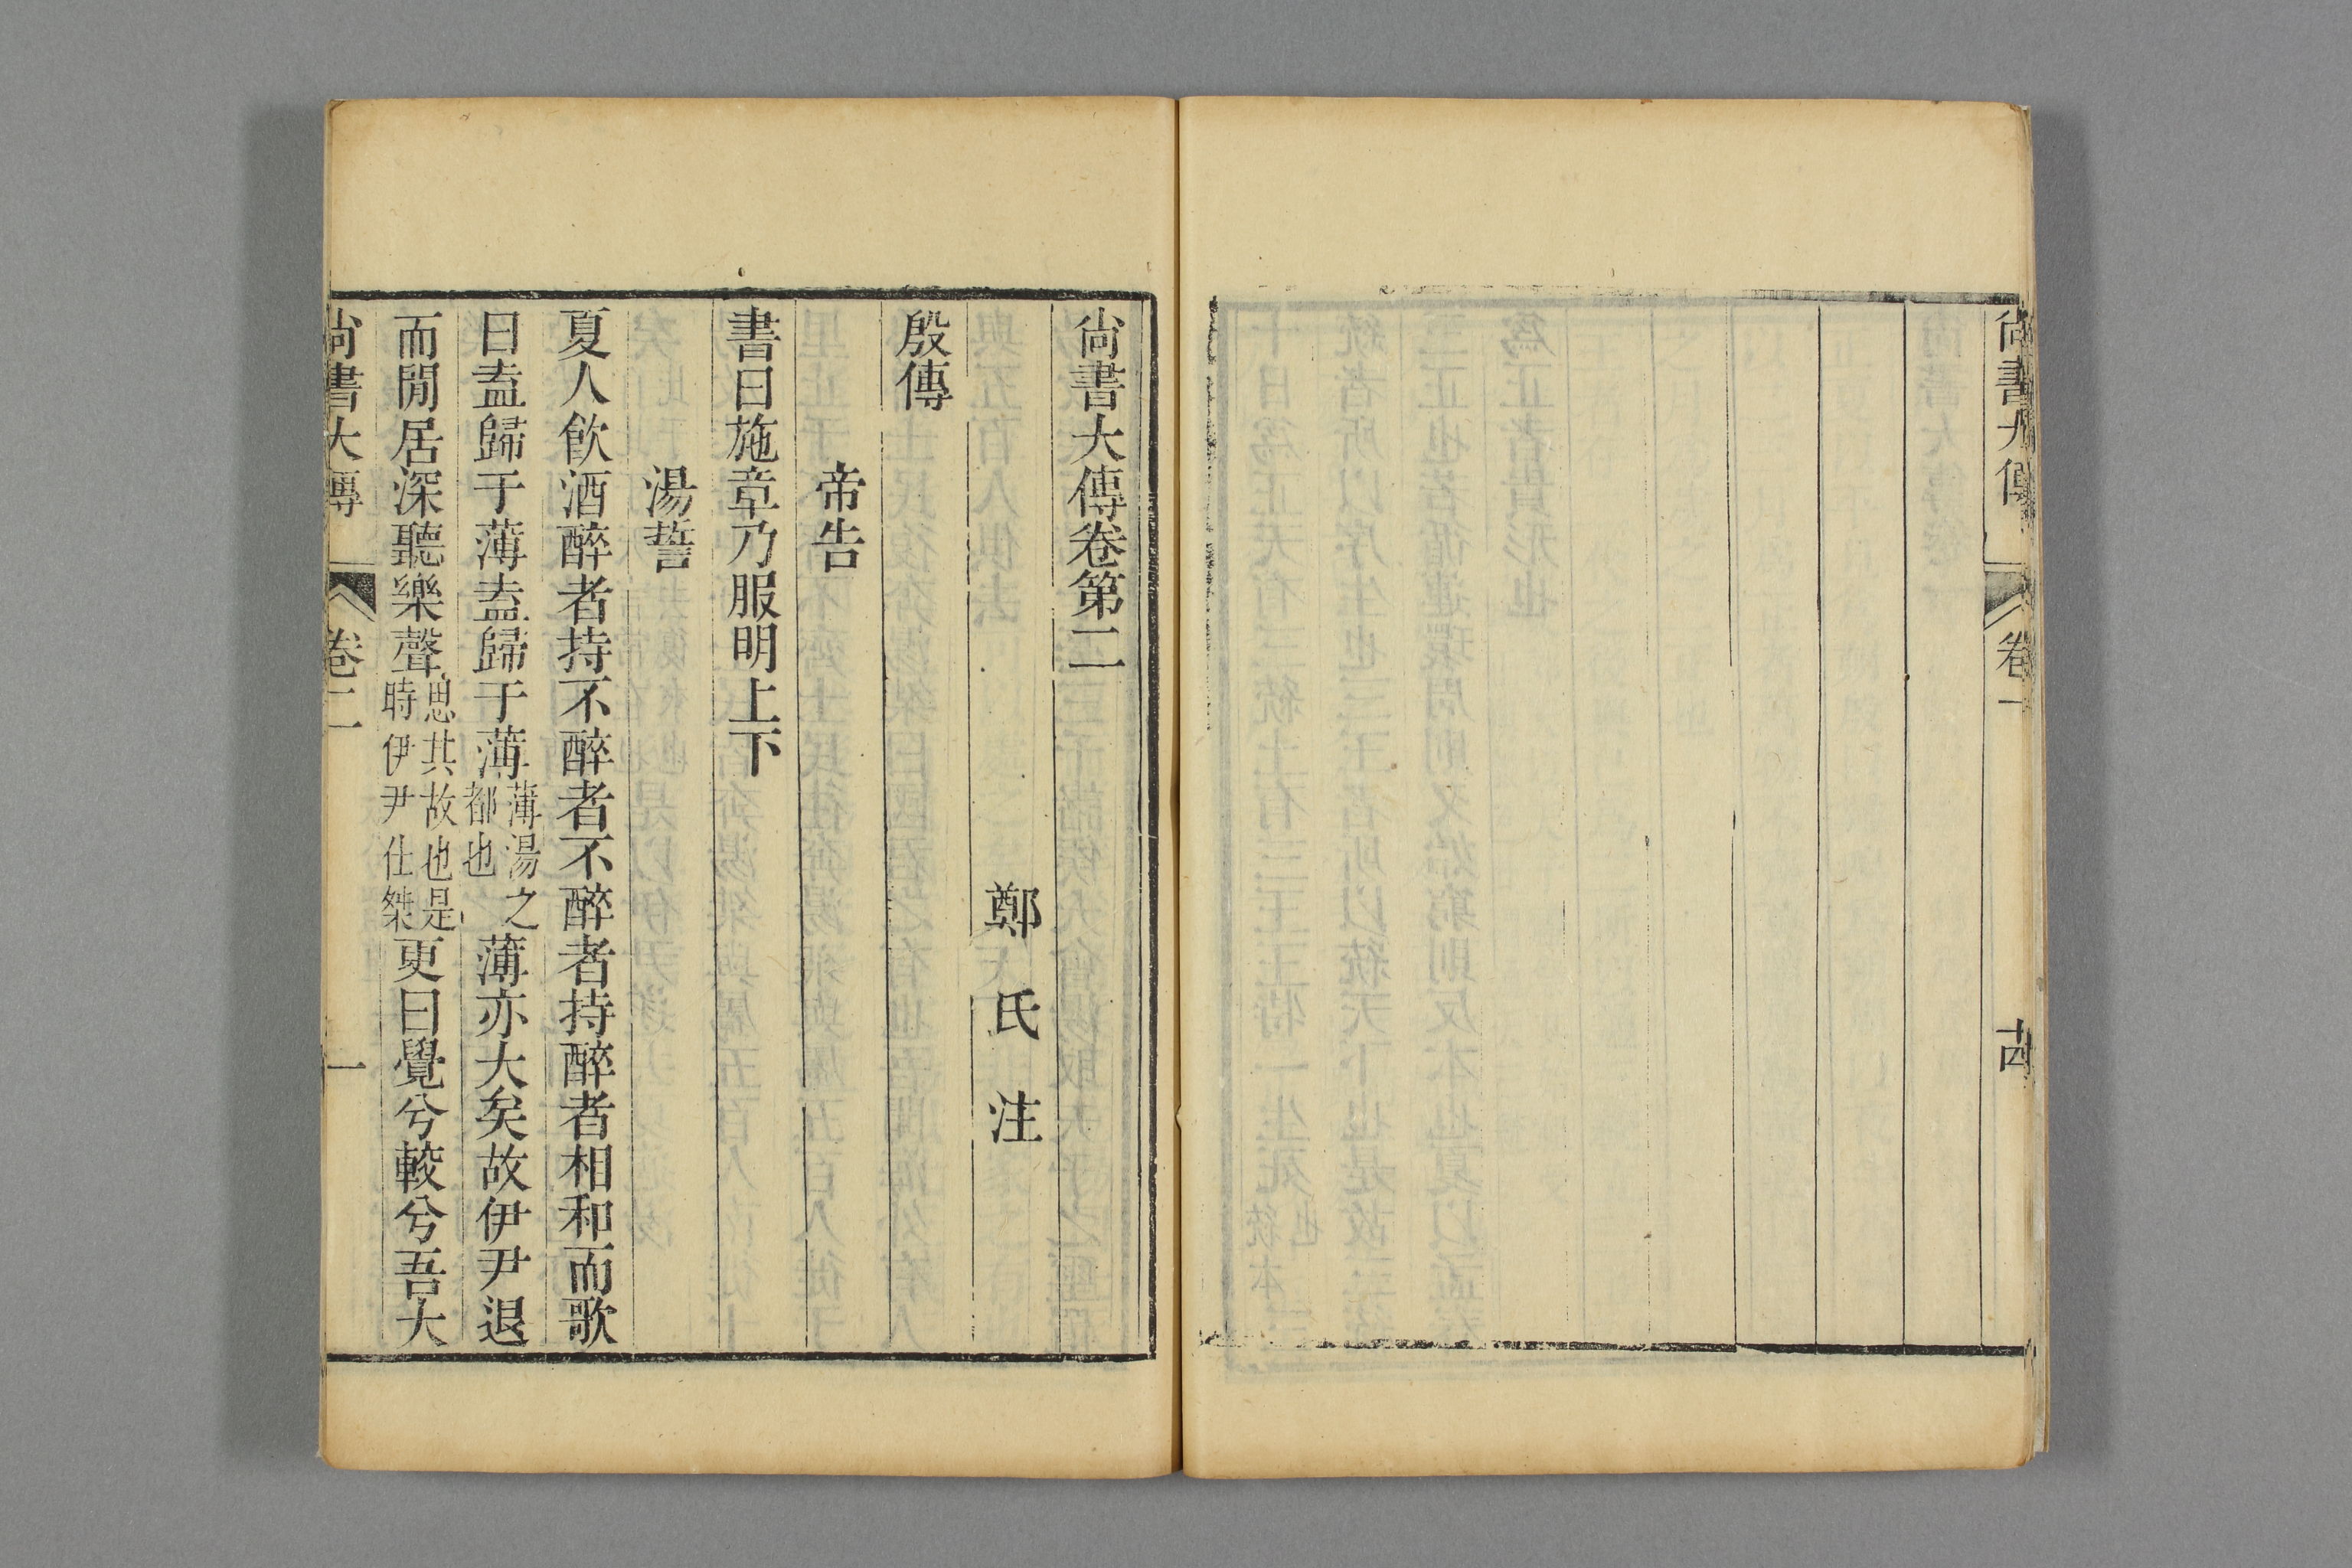 尚書大傳
卷一
十四
尚書大傳卷第二
鄭氏注
殷傳
帝告
書曰施章乃服明上下
湯誓
夏人飲酒醉者持不醉者不醉者持醉者相和而歌
曰盍歸于薄盍歸于薄薄湯之都也薄亦大矣故伊尹退
而閒居深聽樂聲思其故也是時伊尹仕桀更曰覺兮較兮吾大
尚書大傳
卷二
一